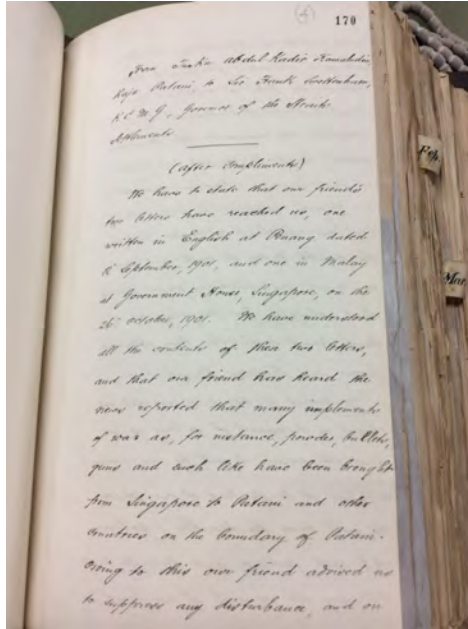 (4)
170
from Tunku Abdul Kadir Kamaludin,
Raja Patani to Sir Frank Swettenham,
K.C.M.G., Governor of the Straits
Settlements
(after compliments)
We have to state that our friend's
two letters have reached us, one
written in English at Penang dated
September, 1901, and one in Malay
at Government House, Singapore, on the
26th October, 1901. We have understood
all the contents of these two letters,
and that our friend has heard the
news reported that many implements
of war as, for instance, powder, bullets,
guns and such like have been brought
from Singapore to Patani and other
countries on the boundary of Patani.
Owing to this our friend advised us
to suppress any disturbance, and on
Feb.
Mar